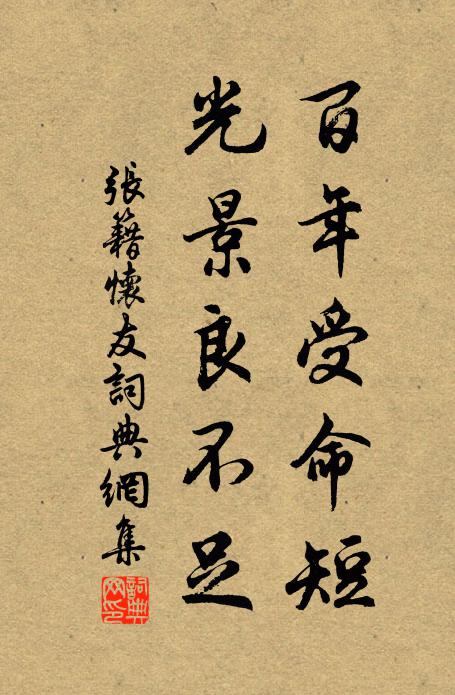 百年受命短
光景良不足
張籍懷友詞典網集
詞典網印